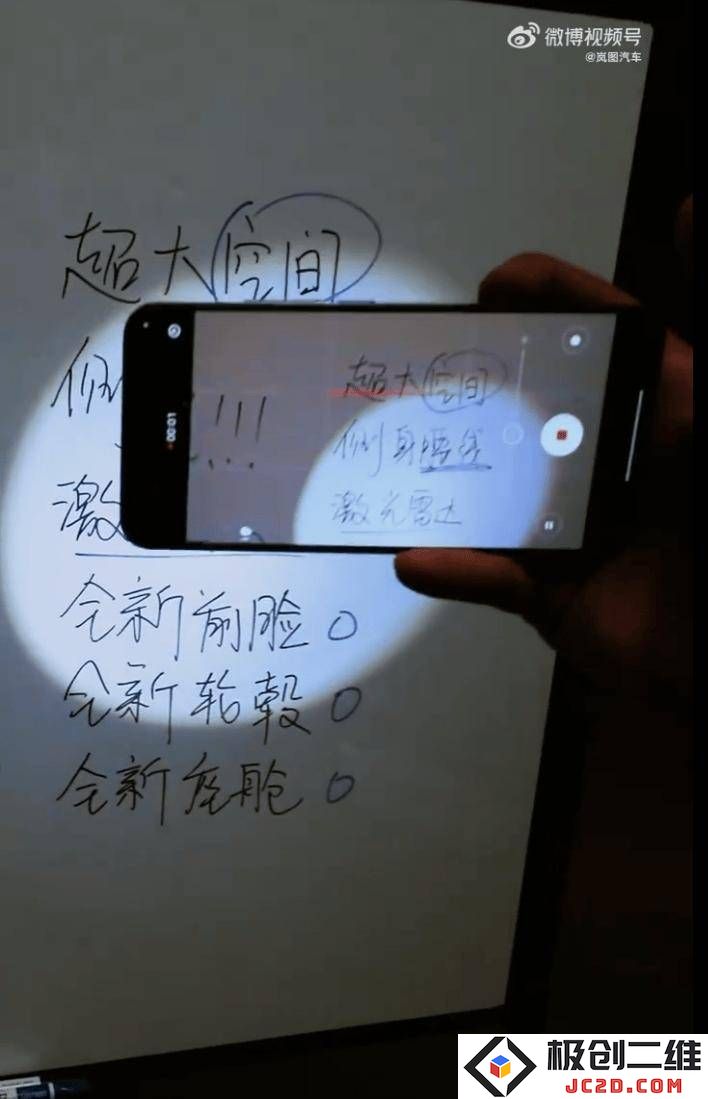 微博视频号
@岚图汽车
超大空间
侧
激
全新前脸 0
全新轮毂 0
全新座舱 0
00:01
!!!
...
超大空间
侧身腰线
激光雷达
极创二维
JC2D.COM